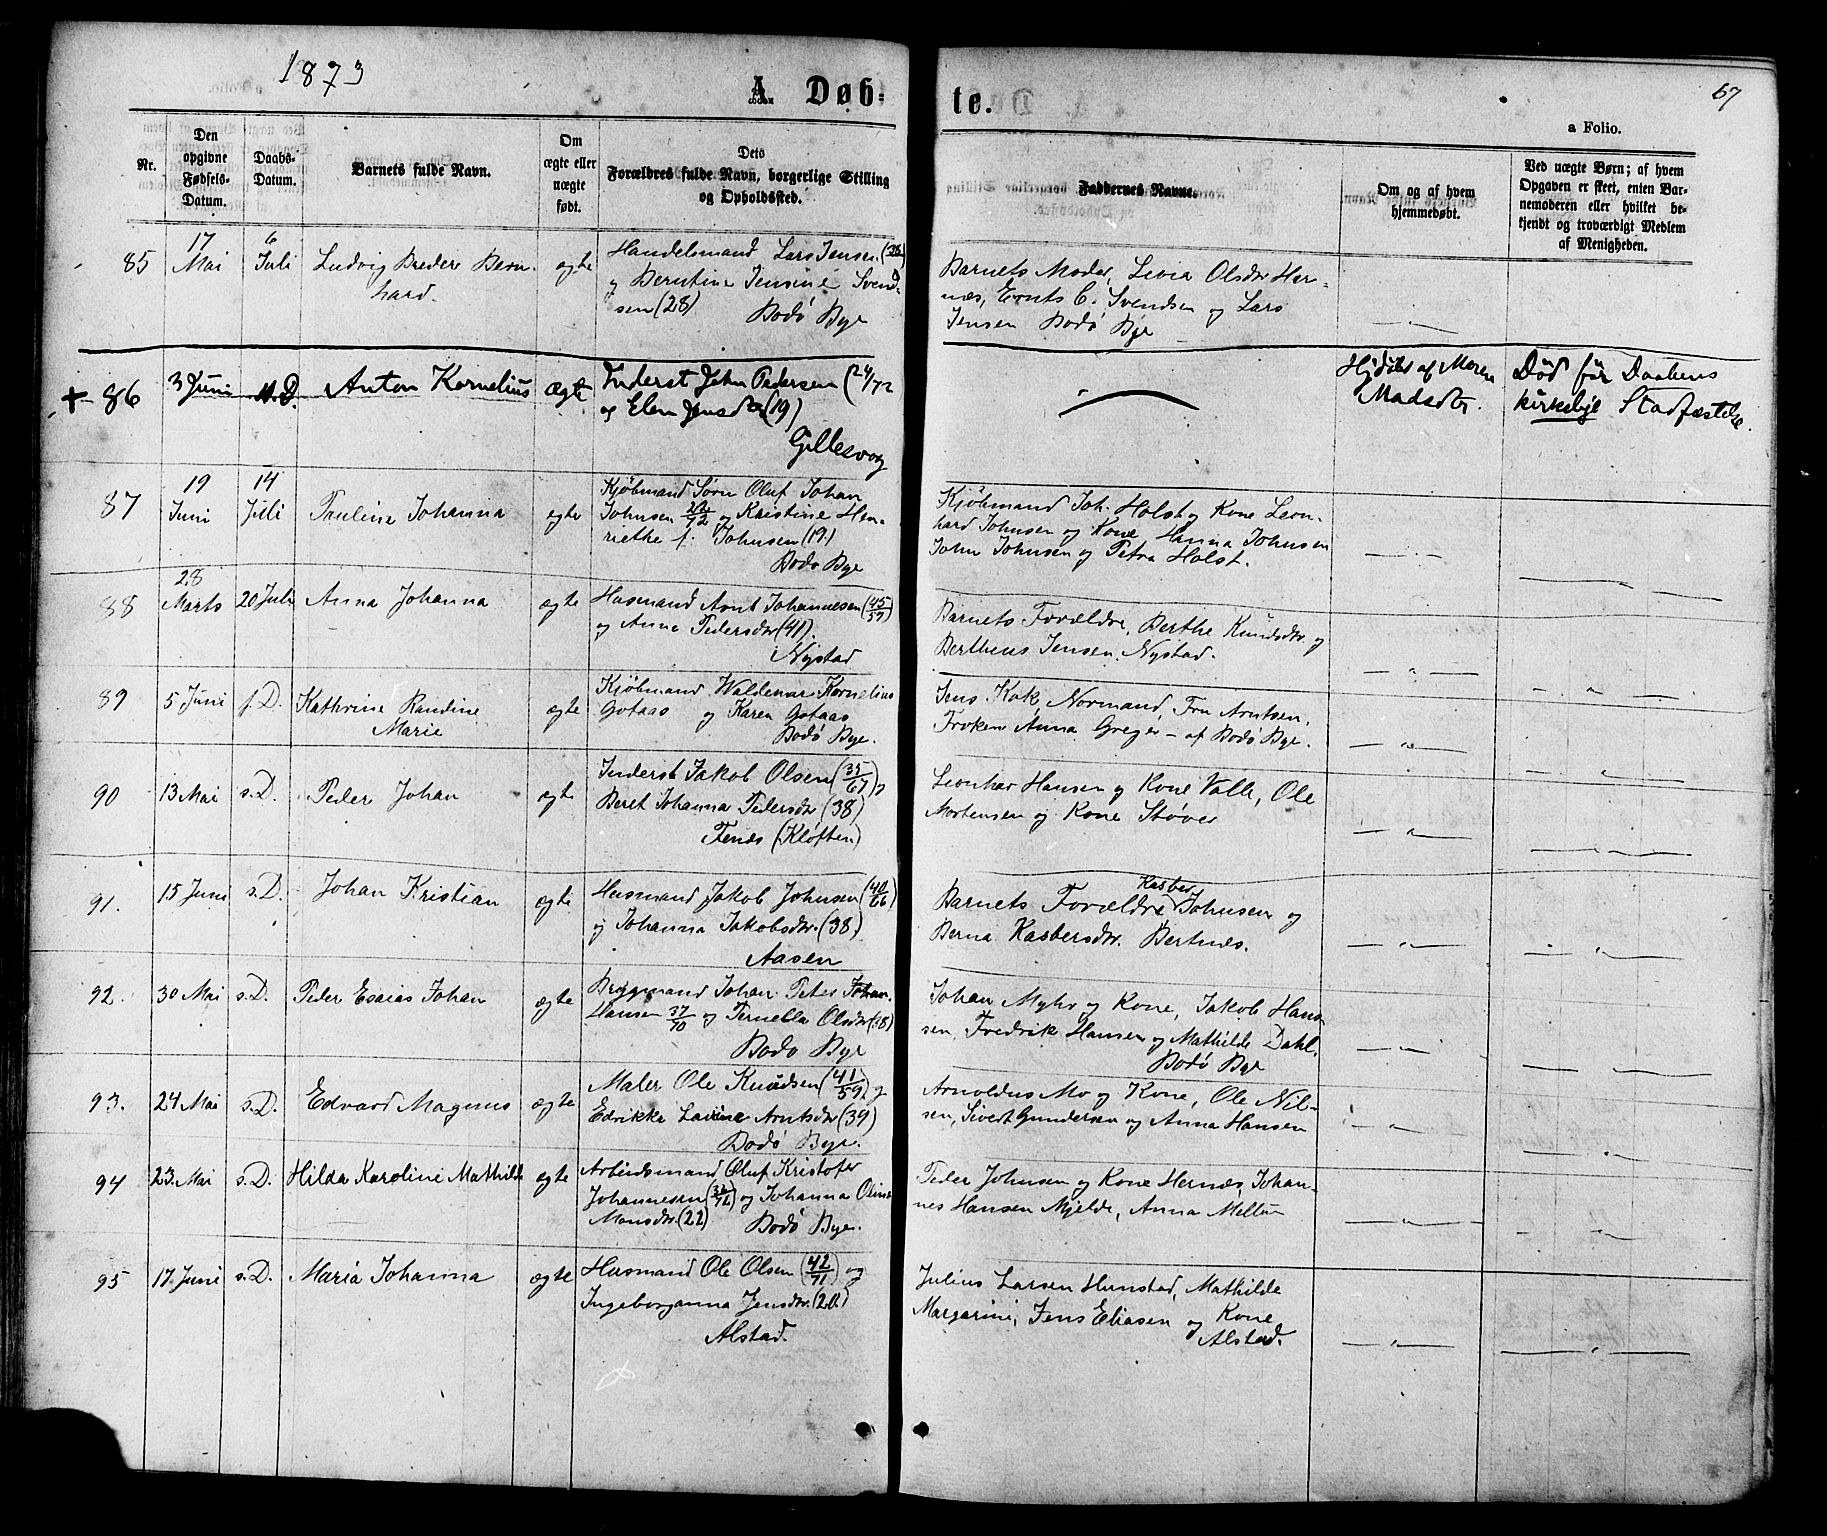 1873
A Døb-
te.
67
a Folio.
Nr.
Den opgivne Fødsels-Datum.
Daabs-Datum.
Barnets fulde Navn.
Om ægte eller uægte født.
Dets Forældres fulde Navn, borgerlige Stilling og Opholdssted.
Faddernes Navne.
Om og af hvem hjemmedøbt.
Ved uægte Børn; af hvem Opgaven er skeet, enten Barnemoderen eller hvilket bekjendt og troværdigt Medlem af Menigheden.
85 17 Mai 6 Juli Ludvig Breder Bern-
hard. ægte
Handelsmand Lars Jensen (38)
og Berntine Jensine Svend-
sen (28) Bodø Bye
Barnets Moder, Livia Olsdtr Her-
næs, Ernts C. Svendsen og Lars
Jensen Bodø Bye
+ 86 3 Juni Anton Kornelius ægte
Inderst John Pedersen (24/72
og Elen Jensdtr (19)
Gillesvog
Hjdøbt af Maren
Madsdtr.
Død før Daabens
kirkelige Stadfæstelse.
87 19 Juni 14 Juli Pauline Johanna ægte
Kjøbmand Sørn Oluf Johan
Johnsen 22/72 og Kristine Hen-
riethe f. Johnsen (19)
Bodo Bye
Kjøbmand Joh. Holst og Kone Leon-
hard Johnsen og Kone Hanna Johnsen
John Johnsen og Petra Holst.
88 28 Marts 20 Juli Anna Johanna ægte
Husmand Arnt Johannesen (45/57)
og Anna Pedersdtr (41).
Nystad
Barnets Forældre, Berthe Knudsdtr og
Bertheus Jensen, Nystad.
89 5 Juni s.D. Kathrine Randine
Marie ægte
Kjøbmand Waldemar Kornelius
Gotaas og Karen Gotaas
Bodø Bye.
Jens Kok, Normand, Fru Arntsen.
Frøken Anna Greger – af Bodø Bye.
90 13 Mai s.D. Peder Johan ægte
Inderst Jakob Olsen (35/67) og
Beret Johanna Pedersdtr (38)
Fenes (Kløften)
Leonhar Hansen og Kone Valle, Ole
Mortensen og Kone Støver
91. 15 Juni s.D. Johan Kristian ægte
Husmand Jakob Johnsen (40/66)
og Johanna Jakobsdtr. (38)
Aasen
Barnets Forældre, Kasber Johnsen og
Berna Kasbersdtr. Bertnes.
92. 30 Mai s.D. Peder Esaias Johan ægte
Bryggmand Johan Peter Johan.
Hansen 37/70 og Pernella Olsdtr (38)
Bodo Bye
Johan Myhr og Kone, Jakob Han-
sen, Fredrik Hansen og Mathilde Dahl.
Bodø Bye
93. 24 Mai s.D. Edvard Magnus ægte
Maler Ole Knudsen (41/59) og
Edrikke Lavine Arntsdtr (39)
Bodø Bye.
Arnoldus Mo og Kone, Ole Nil-
sen, Sivert Gundersen og Anna Hansen
94 23. Mai s.D. Hilda Karoline Mathilde ægte
Arbeidsmand Oluf Kristofer
Johannesen (32/72) og Johanna Olina
Monsdtr (22) Bodø Bye.
Peder Johnsen og Kone Hernæs, Johan-
nes Hansen Mjelde, Anna Mellun
95 17. Juni s.D. Maria Johanna ægte
Husmand Ole Olsen (42/71) og
Ingeborganna Jensdtr. (20)
Alstad.
Julius Larsen Hunstad, Mathilde
Margarine, Jens Eliasen og Kone
Alstad.